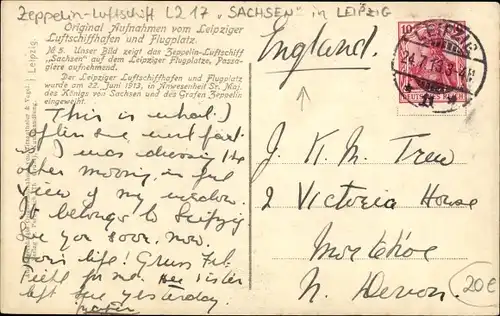 Zeppelin-Luftschiff LZ 17 „SACHSEN" in LEIPZIG
Original Aufnahmen vom Leipziger
Luftschiffhafen und Flugplatz.
No 5. Unser Bild zeigt das Zeppelin-Luftschiff
„Sachsen" auf dem Leipziger Flugplatze, Passa-
giere aufnehmend.
Der Leipziger Luftschiffhafen und Flugplatz
wurde am 22. Juni 1913, in Anwesenheit Sr. Maj.
des Königs von Sachsen und des Grafen Zeppelin
eingeweiht.
This is what I
often see and fast.
I was dressing the
other morning, in full
view of my window.
It belongs to Leipzig
See you soon, now.
life! Gruss Frl.
for me. Her sister
left here yesterday.
England.
J. K. M. Trew
2 Victoria House
Mortehoe
N. Devon.
LEIPZIG
24.7.13
10
DEUTSCHES REICH
20€